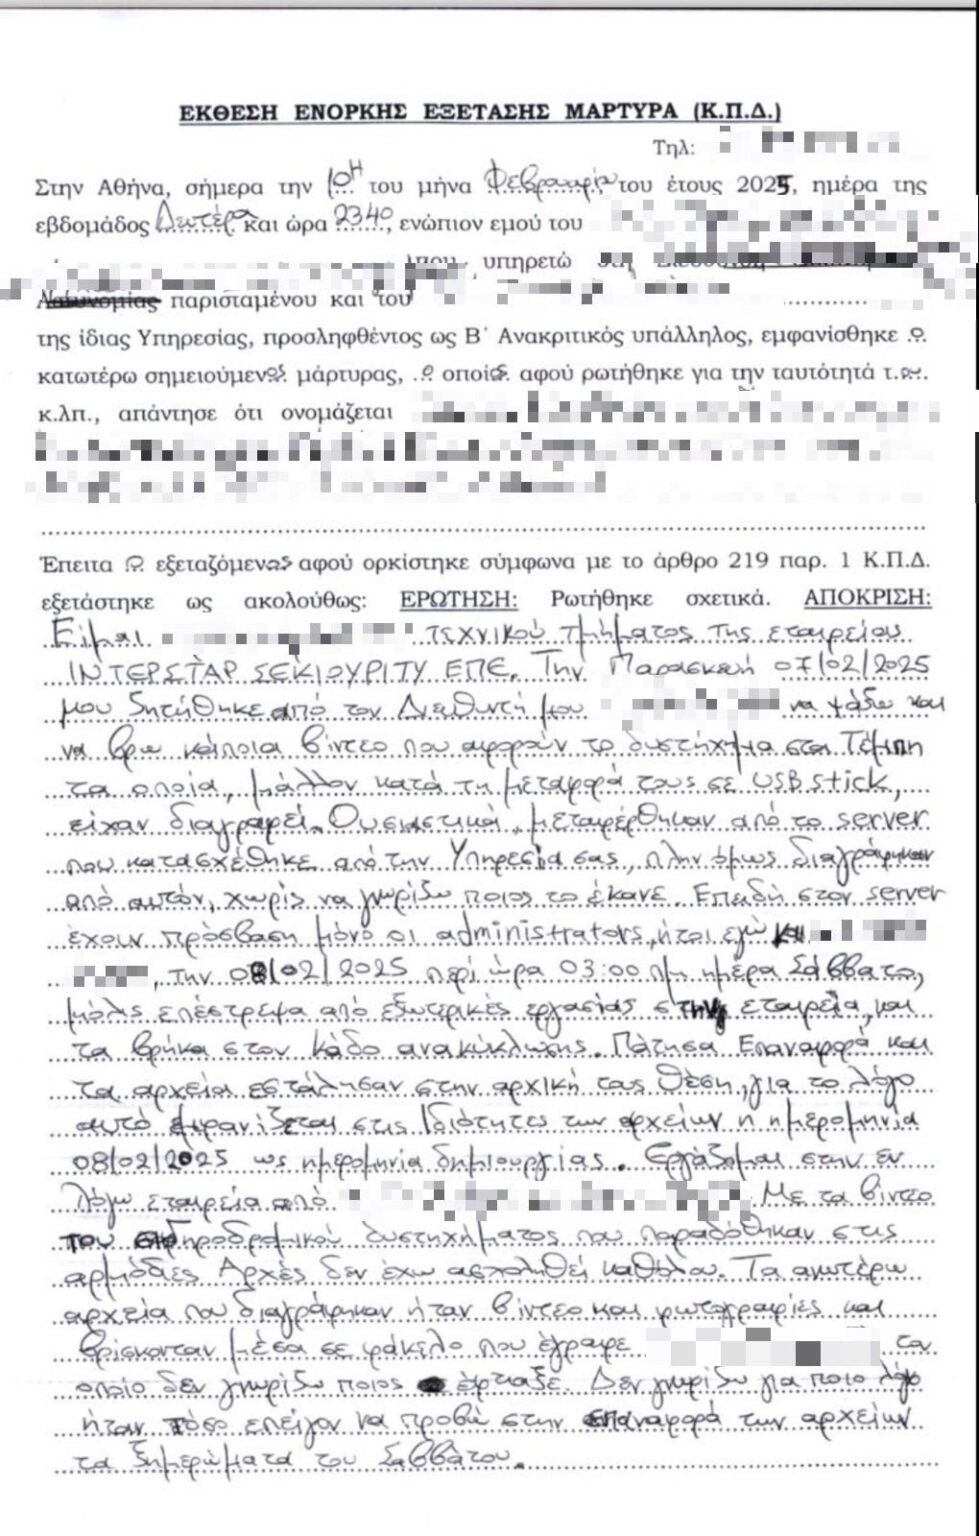 ΕΚΘΕΣΗ ΕΝΟΡΚΗΣ ΕΞΕΤΑΣΗΣ ΜΑΡΤΥΡΑ (Κ.Π.Δ.)
Τηλ:
Στην Αθήνα, σήμερα την 10Η του μήνα Φεβρουαρίου του έτους 2025, ημέρα της
εβδομάδος Δευτέρα και ώρα 2340, ενώπιον εμού του
που υπηρετώ στη
Αστυνομίας παρισταμένου και του
της ίδιας Υπηρεσίας, προσληφθέντος ως Β΄ Ανακριτικός υπάλληλος, εμφανίσθηκε ο
κατωτέρω σημειούμενος μάρτυρας, ο οποίος αφού ρωτήθηκε για την ταυτότητά του
κ.λπ., απάντησε ότι ονομάζεται
Έπειτα ο εξεταζόμενος αφού ορκίστηκε σύμφωνα με το άρθρο 219 παρ. 1 Κ.Π.Δ.
εξετάστηκε ως ακολούθως: ΕΡΩΤΗΣΗ: Ρωτήθηκε σχετικά. ΑΠΟΚΡΙΣΗ:
Είμαι τεχνικού τμήματος της εταιρείου
ΙΝΤΕΡΣΤΑΡ ΣΕΚΙΟΥΡΙΤΥ ΕΠΕ. Την Παρασκευή 07/02/2025
μου ζητήθηκε από τον Διευθυντή μου να ψάξω και
να βρω κάποια βίντεο που αφορούν το δυστήχημα στα Τέμπη
τα οποία, μάλλον κατά τη μεταφορά τους σε USB stick,
είχαν διαγραφεί. Ουσιαστικά, μεταφέρθηκαν από το server
που κατασχέθηκε από την Υπηρεσία σας, πλην όμως διαγράφηκαν
από αυτόν, χωρίς να γνωρίζω ποιος το έκανε. Επειδή στον server
έχουν πρόσβαση μόνο οι administrators, ήτοι εγώ και
, την 08/02/2025 περί ώρα 03:00 πμ ημέρα Σάββατο,
μόλις επέστρεψα από εξωτερικές εργασίες στην εταιρεία, και
τα βρήκα στον κάδο ανακύκλωσης. Πάτησα Επαναφορά και
τα αρχεία εστάλησαν στην αρχική τους θέση, για το λόγο
αυτό εμφανίζεται στις Ιδιότητες των αρχείων η ημερομηνία
08/02/2025 ως ημερομηνία δημιουργίας. Εργάζομαι στην εν
λόγω εταιρεία από Με τα βίντεο
του σιδηροδρομικού δυστηχήματος που παραδόθηκαν στις
αρμόδιες Αρχές δεν έχω ασχοληθεί καθόλου. Τα ανωτέρω
αρχεία που διαγράφηκαν ήταν βίντεο και φωτογραφίες και
βρίσκονταν μέσα σε φάκελο που έγραφε τον
οποίο δεν γνωρίζω ποιος έφτιαξε. Δεν γνωρίζω για ποιο λόγο
ήταν τόσο επείγον να προβώ στην επαναφορά των αρχείων
τα ξημερώματα του Σαββάτου.